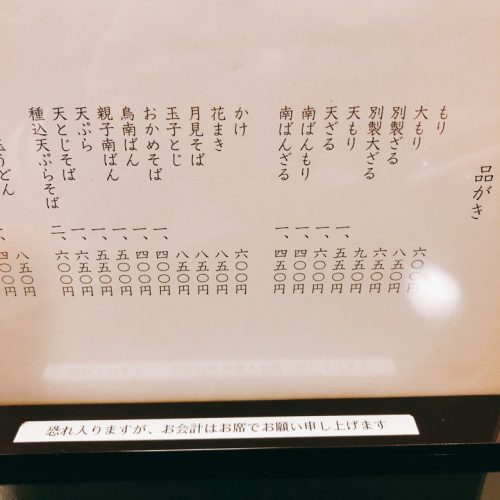 品がき
もり 六〇〇円
大もり 八五〇円
別製ざる 六五〇円
別製大ざる 九五〇円
天もり 一、五五〇円
天ざる 一、六〇〇円
南ばんもり 一、四〇〇円
南ばんざる 一、四五〇円
かけ 六〇〇円
花まき 八五〇円
月見そば 八五〇円
玉子とじ 八五〇円
おかめそば 一、四〇〇円
鳥南ばん 一、四〇〇円
親子南ばん 一、四五〇円
天ぷら 一、五五〇円
天とじそば 一、六五〇円
種込天ぷらそば 二、六〇〇円
八五〇円
うどん 一、四〇〇円
恐れ入りますが、お会計はお席でお願い申し上げます